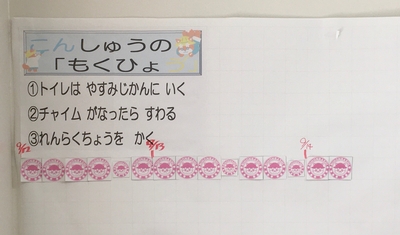 こんしゅうの
「もくひょ
①トイレは やすみじかんに いく
②チャイム がなったら すわる
③れんらくちょうを かく